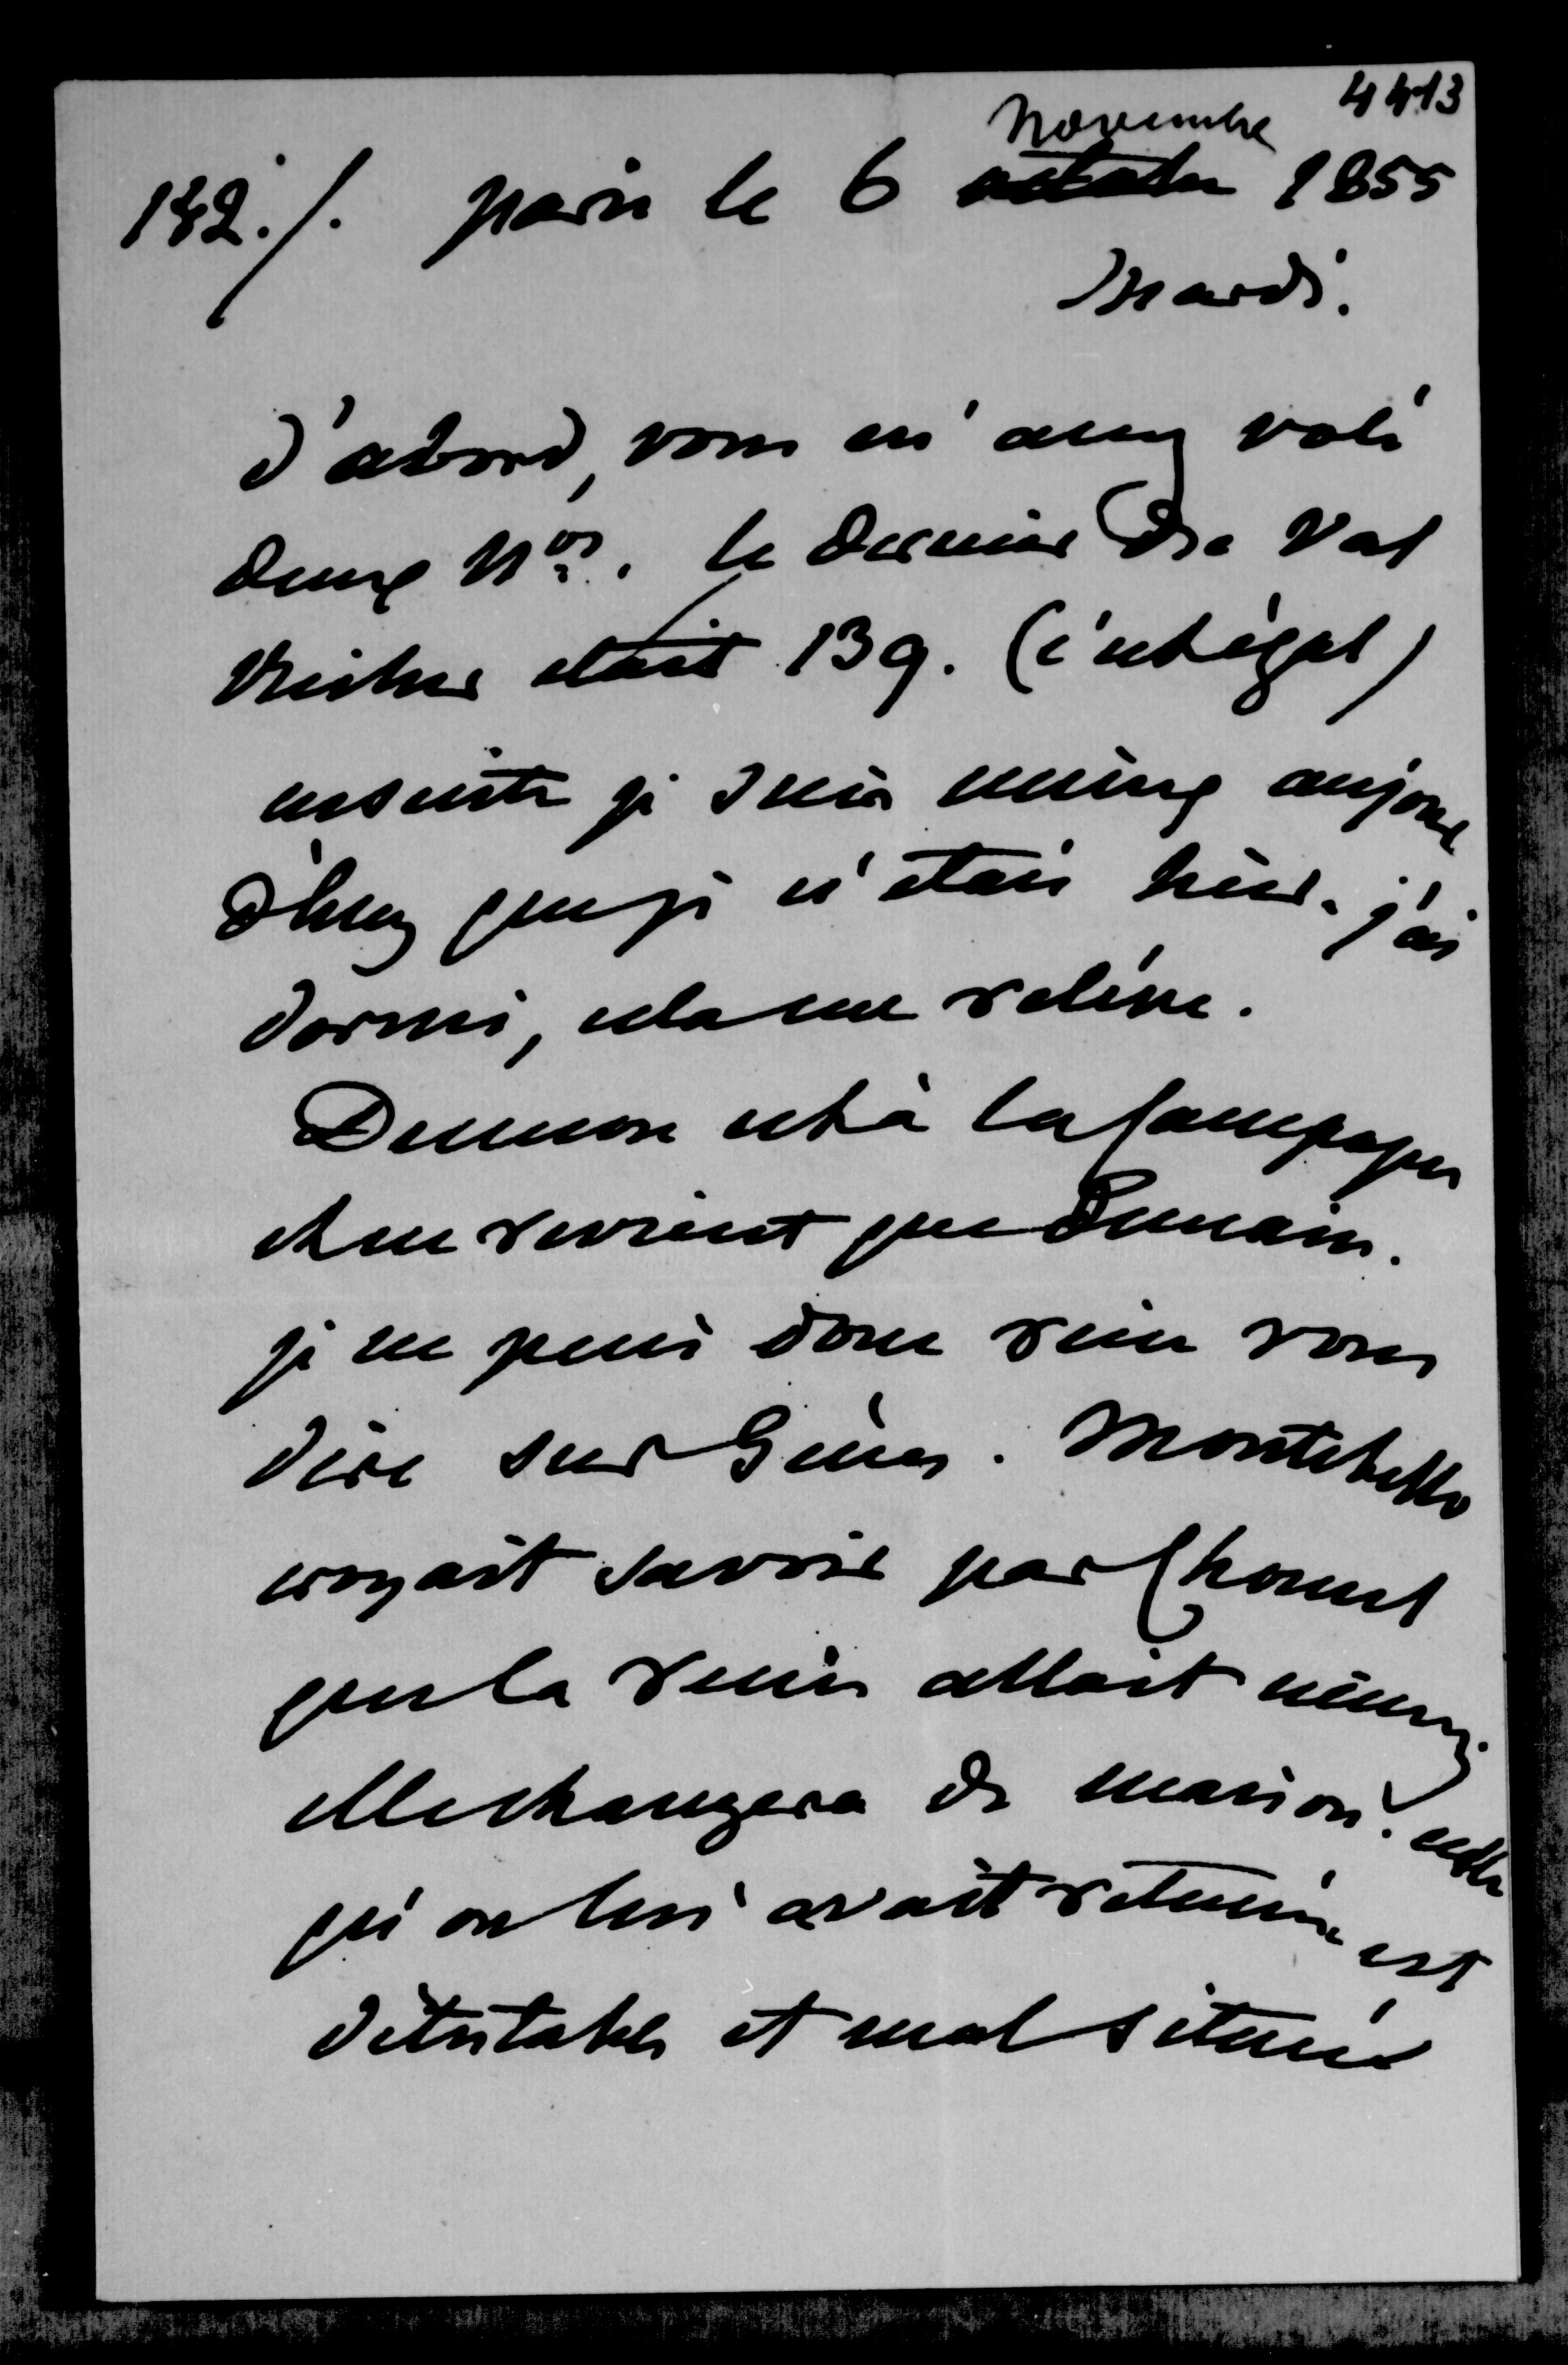 4413
novembre
142./. paris le 6 octobre 1855
Mardi.
d'abord, vous m'avez volé
deux Nos. le dernier du Val
Richer etait 139. (c'est égal)
ensuite je suis mieux aujour
d'huy que je n'étais hier. j'ai
dormi, cela me relève.
Dumon est à la campagne
et ne revient que demain.
je ne puis donc rien vous
dire sur Gènes. Montebello
croyait savoir par Chomel
que la reine allait mieux.
elle changera de maison. celle
qu'on lui avait retenue est
détestable et mal située